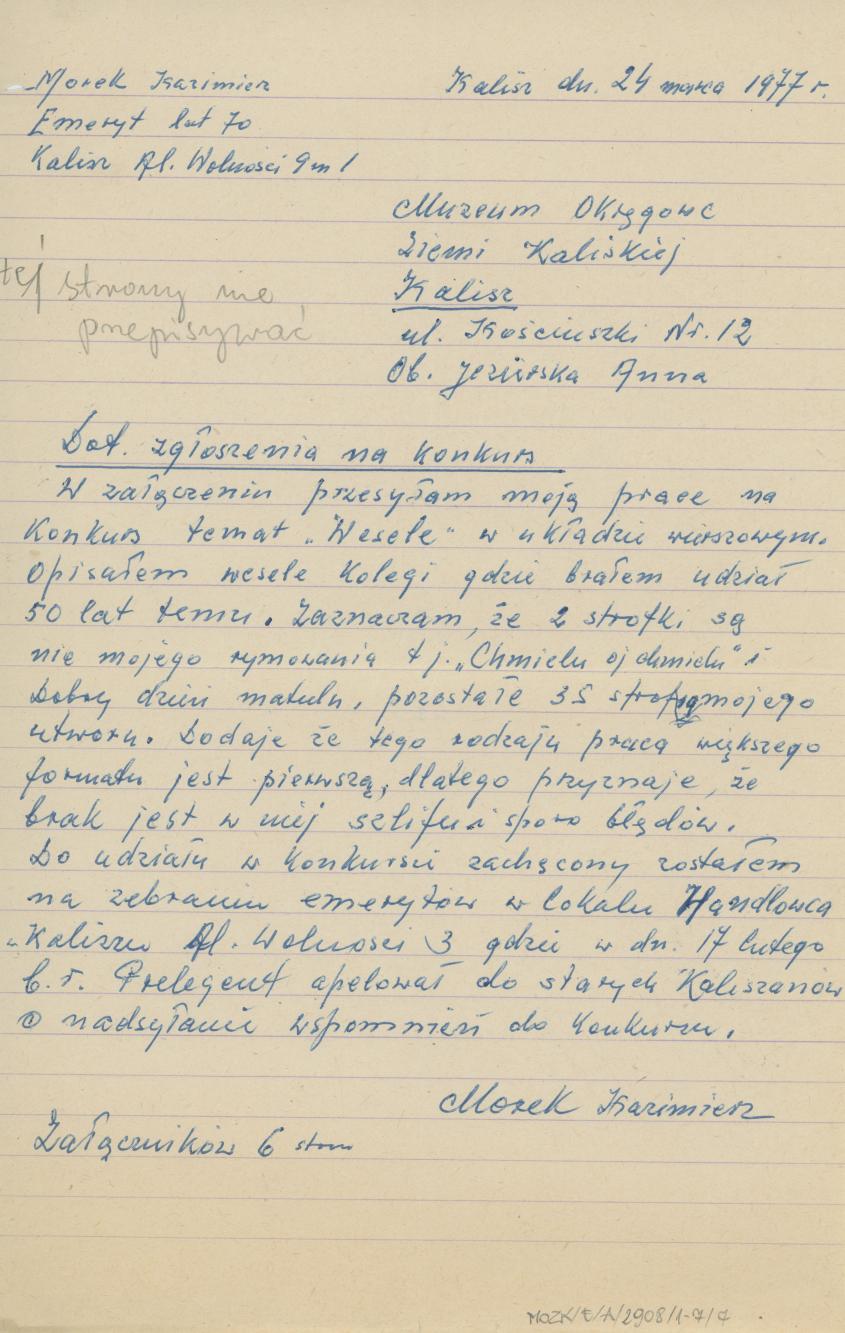 Morek Kazimierz
Kalisz dn. 24 marca 1977 r.
Emeryt lat 70
Kalisz Al. Wolności 9 m 1
Muzeum Okręgowe
Ziemi Kaliskiej
Kalisz
ul. Kościuszki Nr. 12
Ob. Jeziorska Anna
tej strony nie
przepisywać
Dot. zgłoszenia na konkurs
W załączeniu przesyłam moją prace na
Konkurs temat „Wesele" w układzie wierszowym.
Opisałem wesele Kolegi gdzie brałem udział
50 lat temu. Zaznaczam, że 2 strofki są
nie mojego rymowania t j. „Chmielu oj chmielu" i
Dobry dzień matulu, pozostałe 35 mojego
utworu. Dodaje że tego rodzaju praca większego
formatu jest pierwszą, dlatego przyznaje, że
brak jest w niej szlifu i sporo błędów.
Do udziału w Konkursie zachęcony zostałem
na zebraniu emerytów w lokalu Handlowca
„Kaliszu Al. Wolności 3 gdzie w dn. 17 lutego
b. r. Prelegent apelował do starych Kaliszanów
o nadsyłanie wspomnień do Konkursu.
Morek Kazimierz
Załączników 6 stron
MOZK/E/A/2908/1-7/7